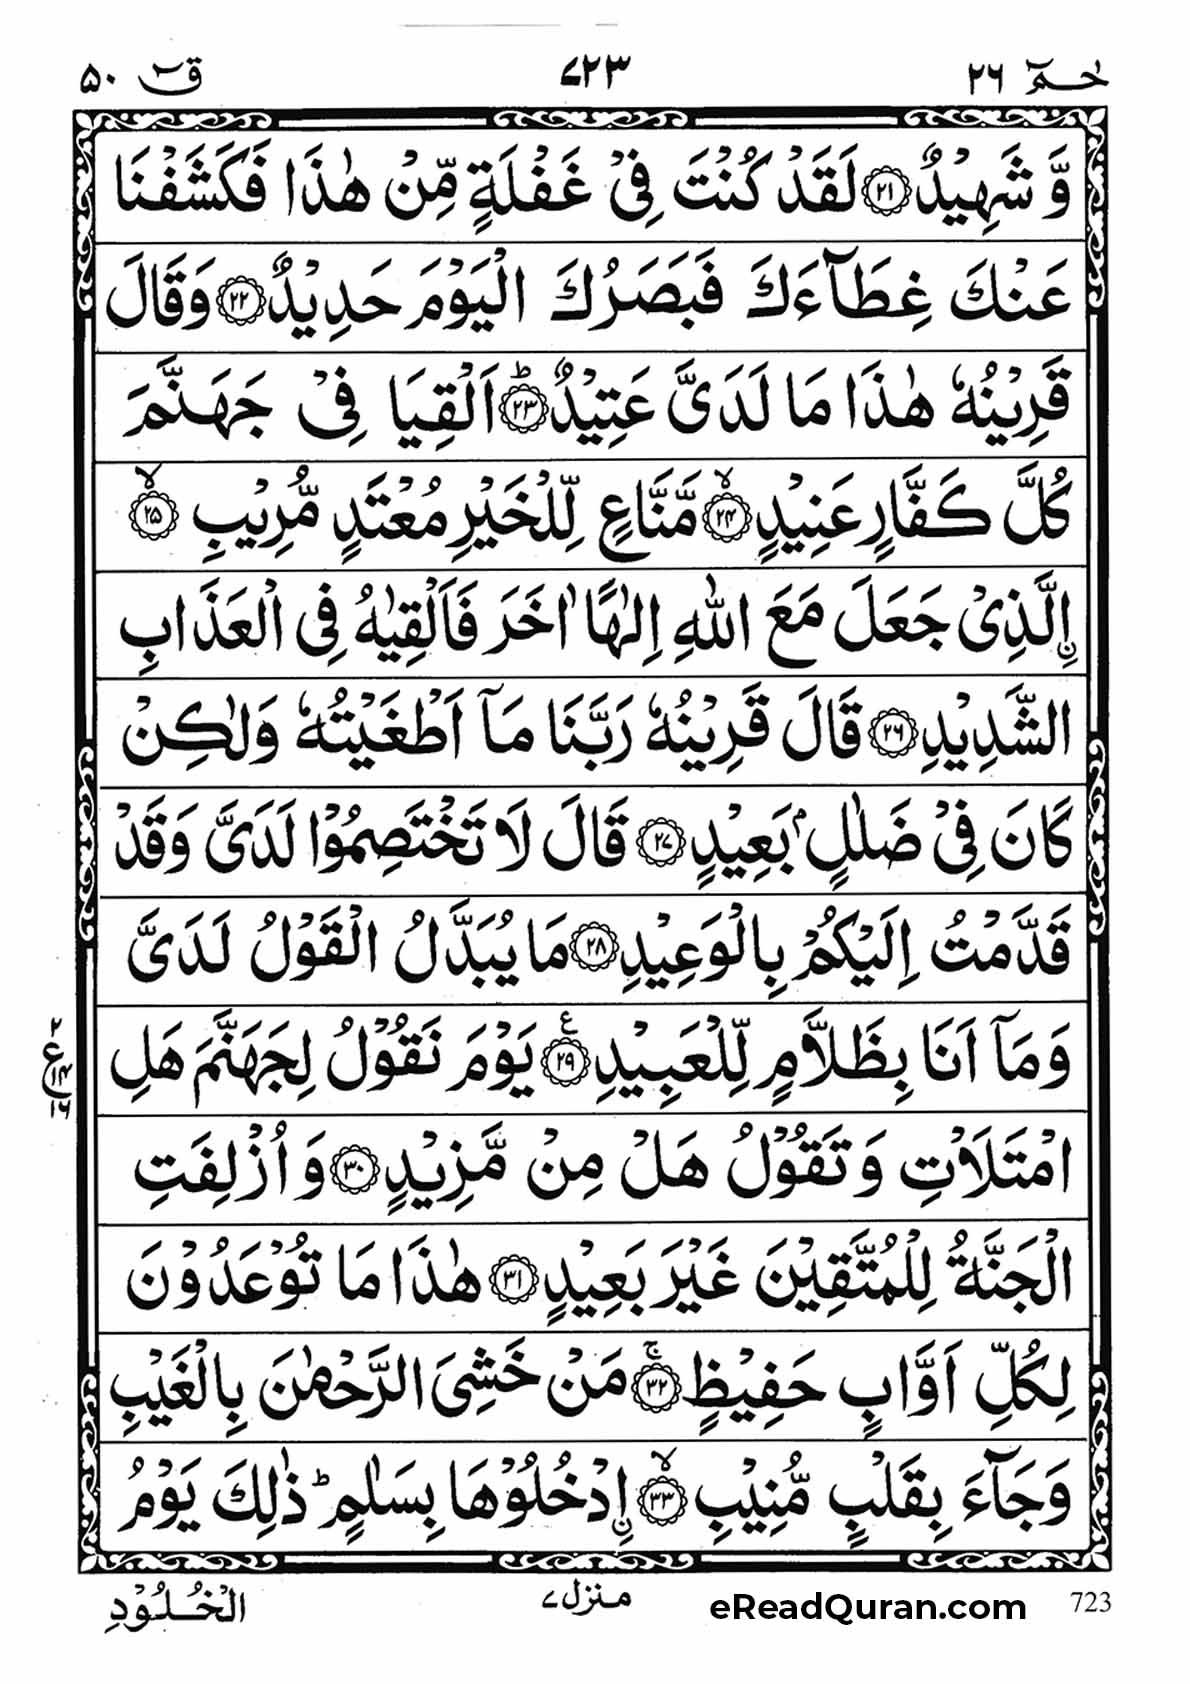 حٰمٓ ٢٦
٧٢٣
قٓ ٥٠
وَّ شَهِيْدٌ ﴿٢١﴾ لَقَدْ كُنْتَ فِيْ غَفْلَةٍ مِّنْ هٰذَا فَكَشَفْنَا
عَنْكَ غِطَآءَكَ فَبَصَرُكَ الْيَوْمَ حَدِيْدٌ ﴿٢٢﴾ وَقَالَ
قَرِيْنُهٗ هٰذَا مَا لَدَىَّ عَتِيْدٌ ﴿٢٣﴾ؕ اَلْقِيَا فِيْ جَهَنَّمَ
كُلَّ كَفَّارٍ عَنِيْدٍ ﴿٢۴﴾ۙ مَّنَّاعٍ لِّلْخَيْرِ مُعْتَدٍ مُّرِيْبِ ﴿٢٥﴾ۙ
اِ۟لَّذِيْ جَعَلَ مَعَ اللّٰهِ اِلٰهًا اٰخَرَ فَاَلْقِيٰهُ فِي الْعَذَابِ
الشَّدِيْدِ ﴿٢٦﴾ قَالَ قَرِيْنُهٗ رَبَّنَا مَآ اَطْغَيْتُهٗ وَلٰكِنْ
كَانَ فِيْ ضَلٰلٍۭ بَعِيْدٍ ﴿٢٧﴾ قَالَ لَا تَخْتَصِمُوْا لَدَىَّ وَقَدْ
قَدَّمْتُ اِلَيْكُمْ بِالْوَعِيْدِ ﴿٢٨﴾ مَا يُبَدَّلُ الْقَوْلُ لَدَىَّ
وَمَآ اَنَا بِظَلَّامٍ لِّلْعَبِيْدِ ﴿٢٩﴾ع يَوْمَ نَقُوْلُ لِجَهَنَّمَ هَلِ
٢
ع
١۴
١٦
امْتَلَاْتِ وَتَقُوْلُ هَلْ مِنْ مَّزِيْدٍ ﴿٣٠﴾ وَاُزْلِفَتِ
الْجَنَّةُ لِلْمُتَّقِيْنَ غَيْرَ بَعِيْدٍ ﴿٣١﴾ هٰذَا مَا تُوْعَدُوْنَ
لِكُلِّ اَوَّابٍ حَفِيْظٍ ﴿٣٢﴾ۚ مَنْ خَشِيَ الرَّحْمٰنَ بِالْغَيْبِ
وَجَآءَ بِقَلْبٍ مُّنِيْبِ ﴿٣٣﴾ۙ اِ۟دْخُلُوْهَا بِسَلٰمٍؕ ذٰلِكَ يَوْمُ
الْخُلُوْدِ
منزل ٧
eReadQuran.com
723